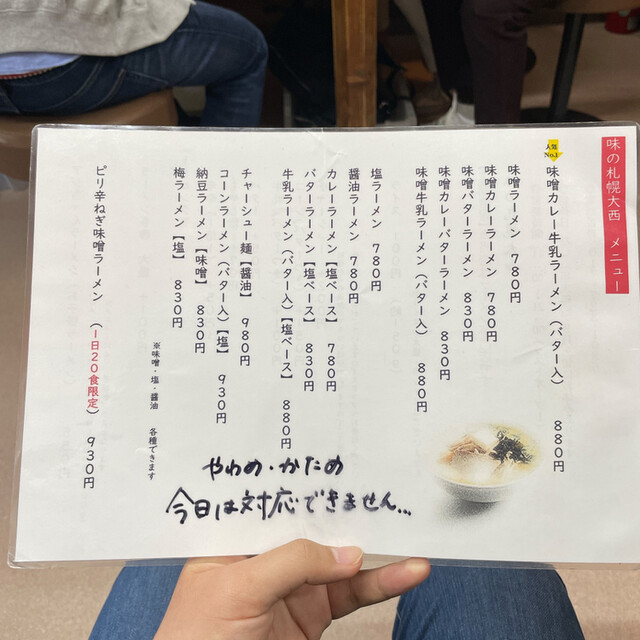 味の札幌大西 メニュー
人気
No.1
味噌カレー牛乳ラーメン(バター入) 880円
味噌ラーメン 780円
味噌カレーラーメン 780円
味噌バターラーメン 830円
味噌カレーバターラーメン 830円
味噌牛乳ラーメン(バター入) 880円
塩ラーメン 780円
醤油ラーメン 780円
カレーラーメン【塩ベース】 780円
バターラーメン【塩ベース】 830円
牛乳ラーメン(バター入)【塩ベース】 880円
チャーシュー麺【醤油】 980円
コーンラーメン(バター入)【塩】 930円
納豆ラーメン【味噌】 830円
梅ラーメン【塩】 830円
※味噌・塩・醤油 各種できます
ピリ辛ねぎ味噌ラーメン (1日20食限定) 930円
やわめ・かため
今日は対応できません...